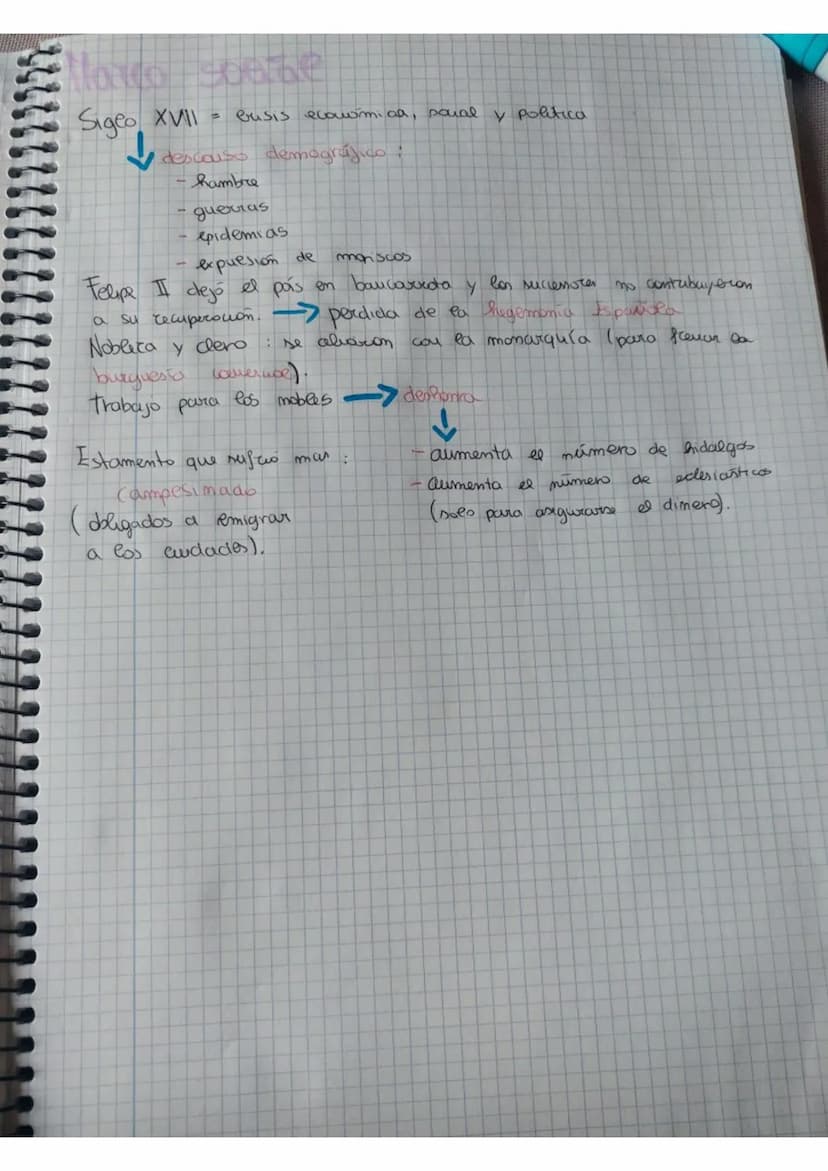 Marco social
Siglo XVII = crisis económica, social y política
descenso demográfico :
- hambre
- guerras
- epidemias
- expulsión de moriscos
Felipe II dejó el país en bancarrota y los sucesores no contribuyeron
a su recuperación. → perdida de la hegemonía Española
Nobleza y clero : se aliaron con la monarquía (para frenar la
burguesía comercial).
Trabajo para los nobles → deshonra
- aumenta el número de hidalgos
- aumenta el número de eclesiásticos
(solo para asegurarse el dinero).
Estamento que sufrió mas :
Campesinado
(obligados a emigrar
a las ciudades).